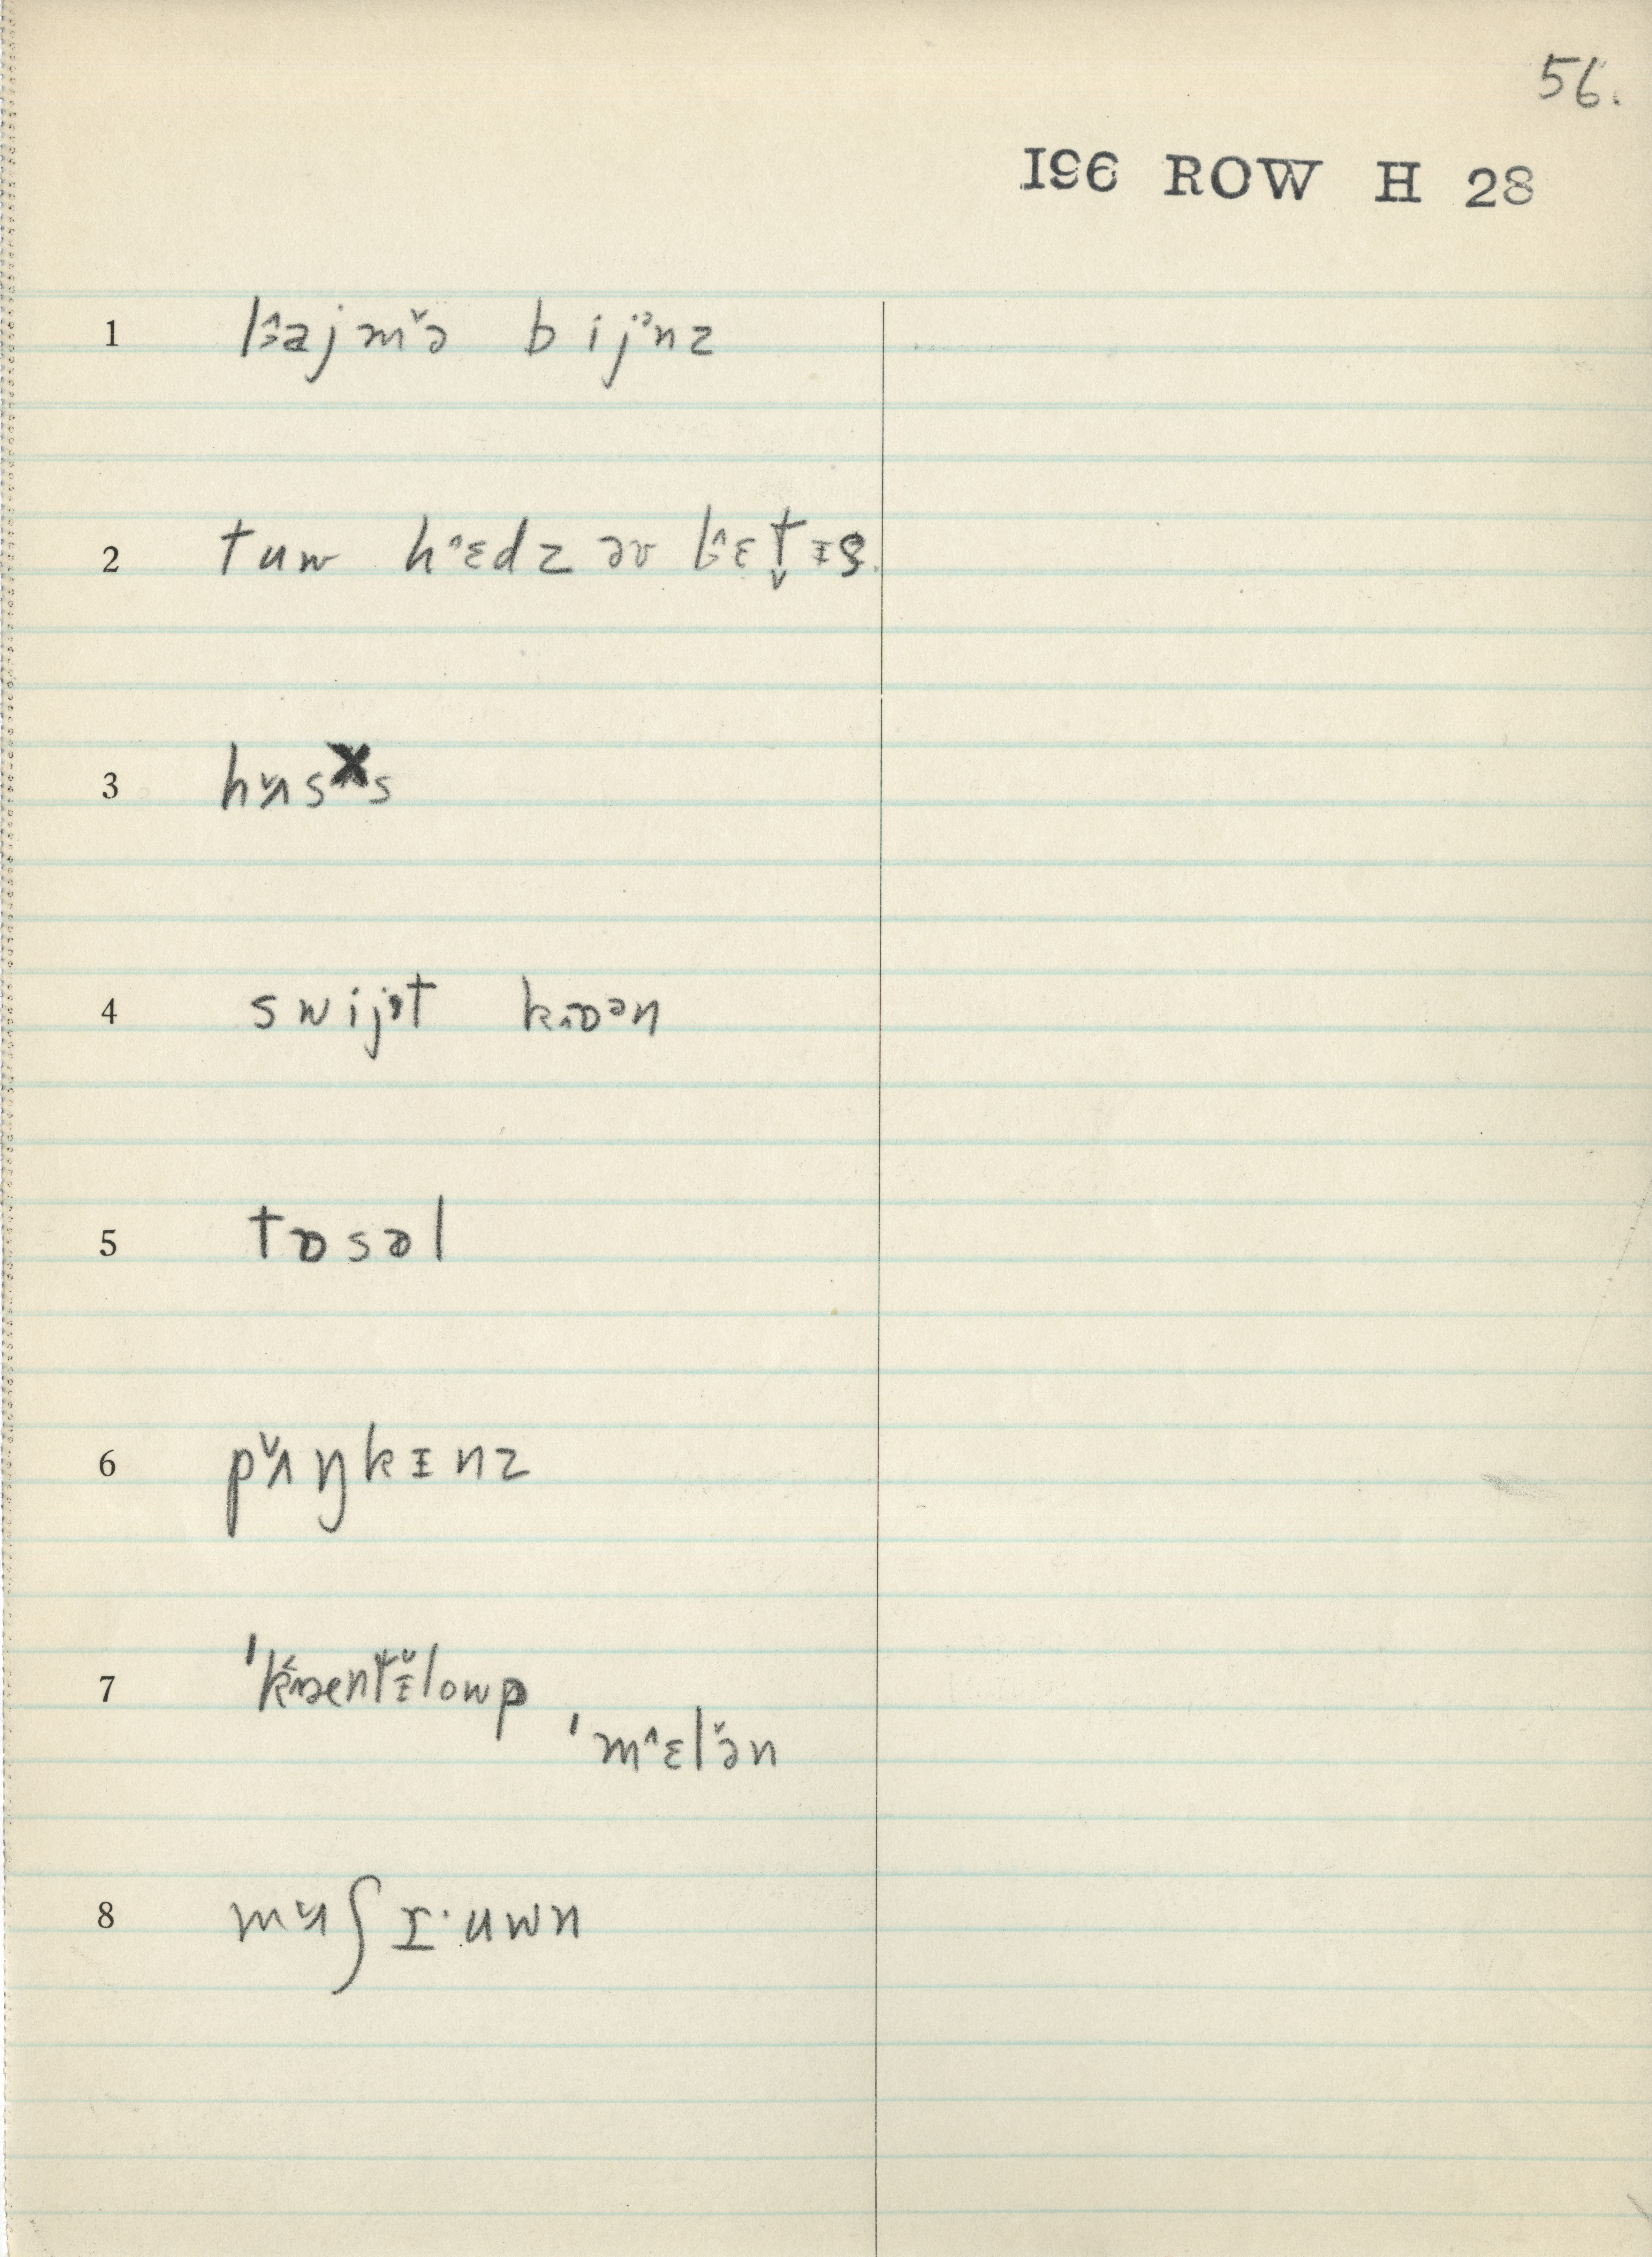 56.
196 ROW H 28
1 lɜ̂ajmə̌ bijᵊnz
2 tuw hˆɛdz əv lɜ̂ɛt̬ᵻs
3 hʌ̌s s
4 swijᵊt kɒᵊn
5 tɒsəl
6 pʌ̌ŋkᵻnz
7 ˈkæentᵻ̌lowp
ˈmˆɛlə̌n
8 mʌ̌ʃɪ·uwn